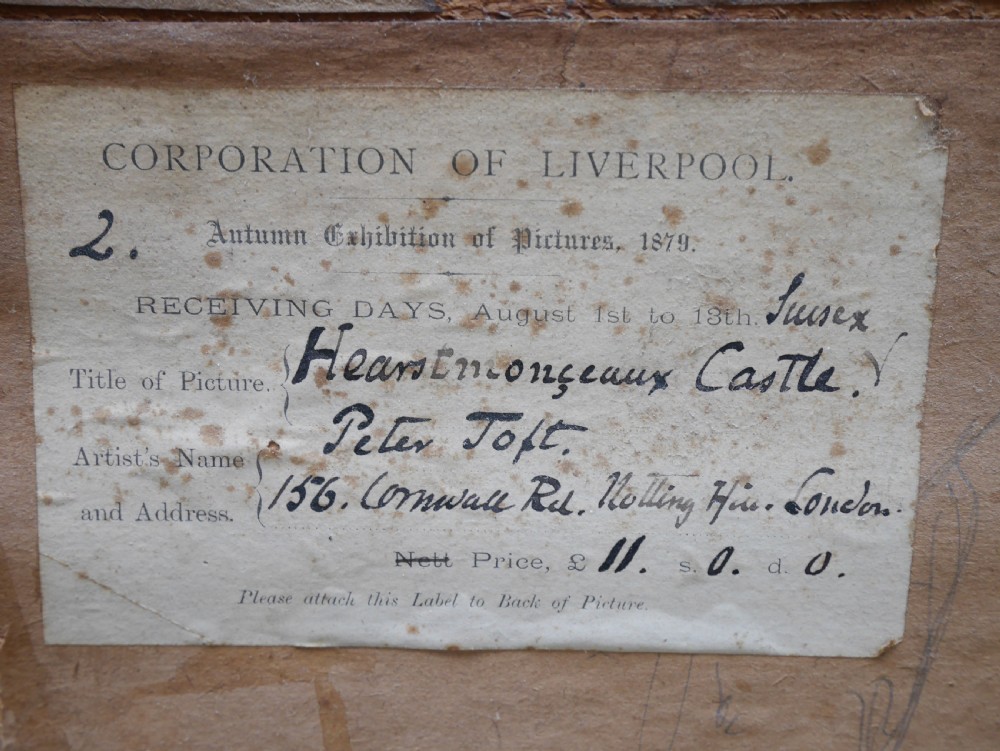 CORPORATION OF LIVERPOOL.
2. Autumn Exhibition of Pictures, 1879.
RECEIVING DAYS, August 1st to 13th. Sussex
Title of Picture. Hearstmonçeaux Castle.
Peter Toft.
Artist's Name
and Address. 156. Cornwall Rd. Notting Hill. London.
Nett Price, £ 11. s. 0. d. 0.
Please attach this Label to Back of Picture.